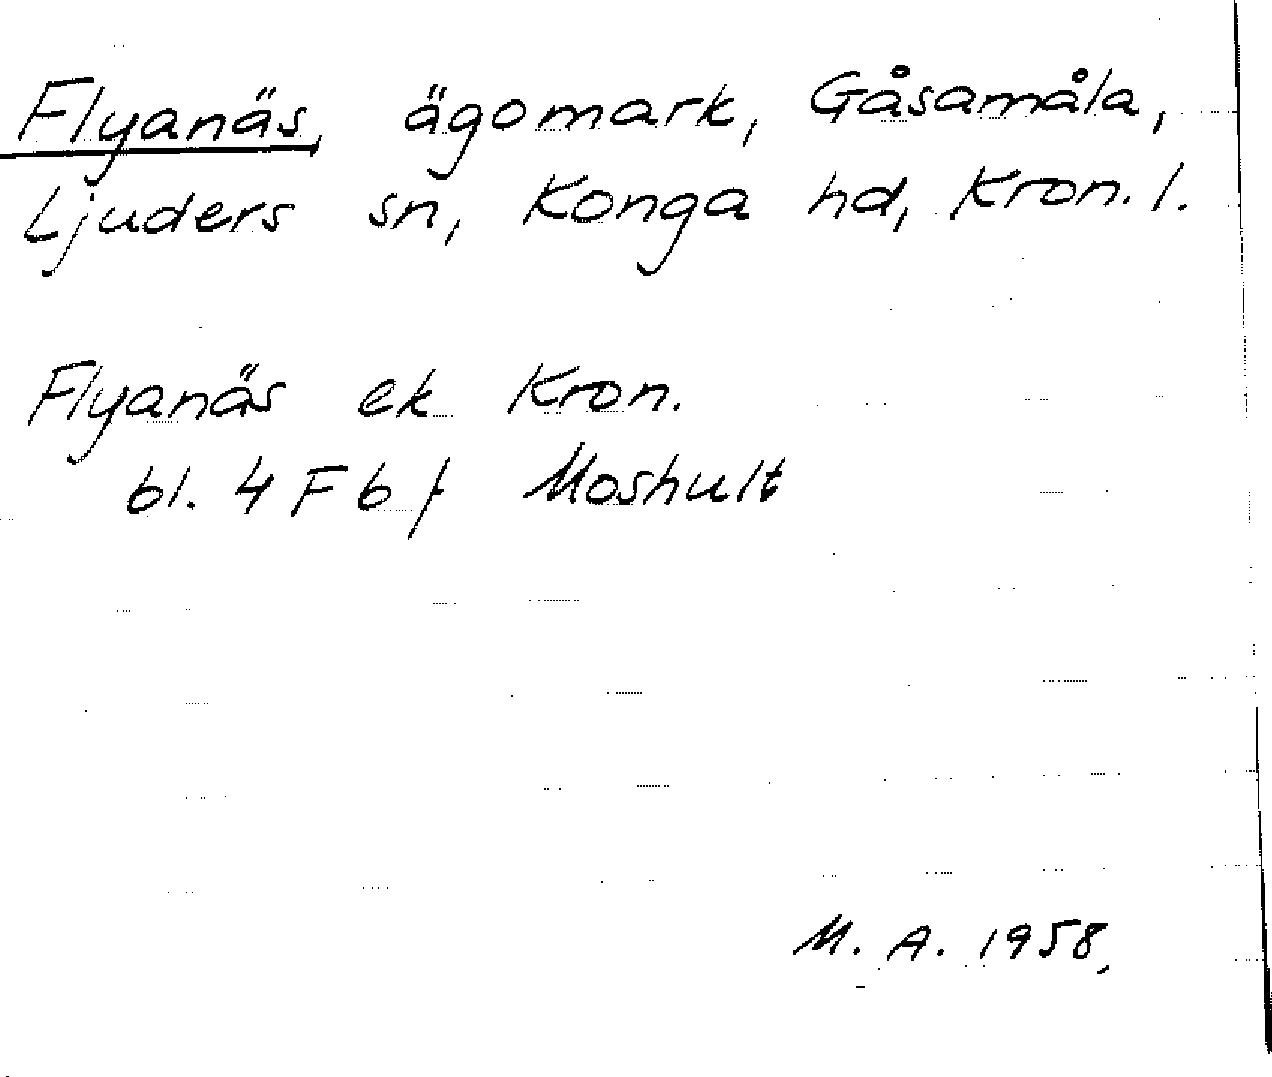 Flyanäs, ägomark, Gåsamåla,
Ljuders sn, Konga hd, Kron. l.
Flyanäs ek Kron.
bl. 4 F b f Moshult
M. A. 1958,